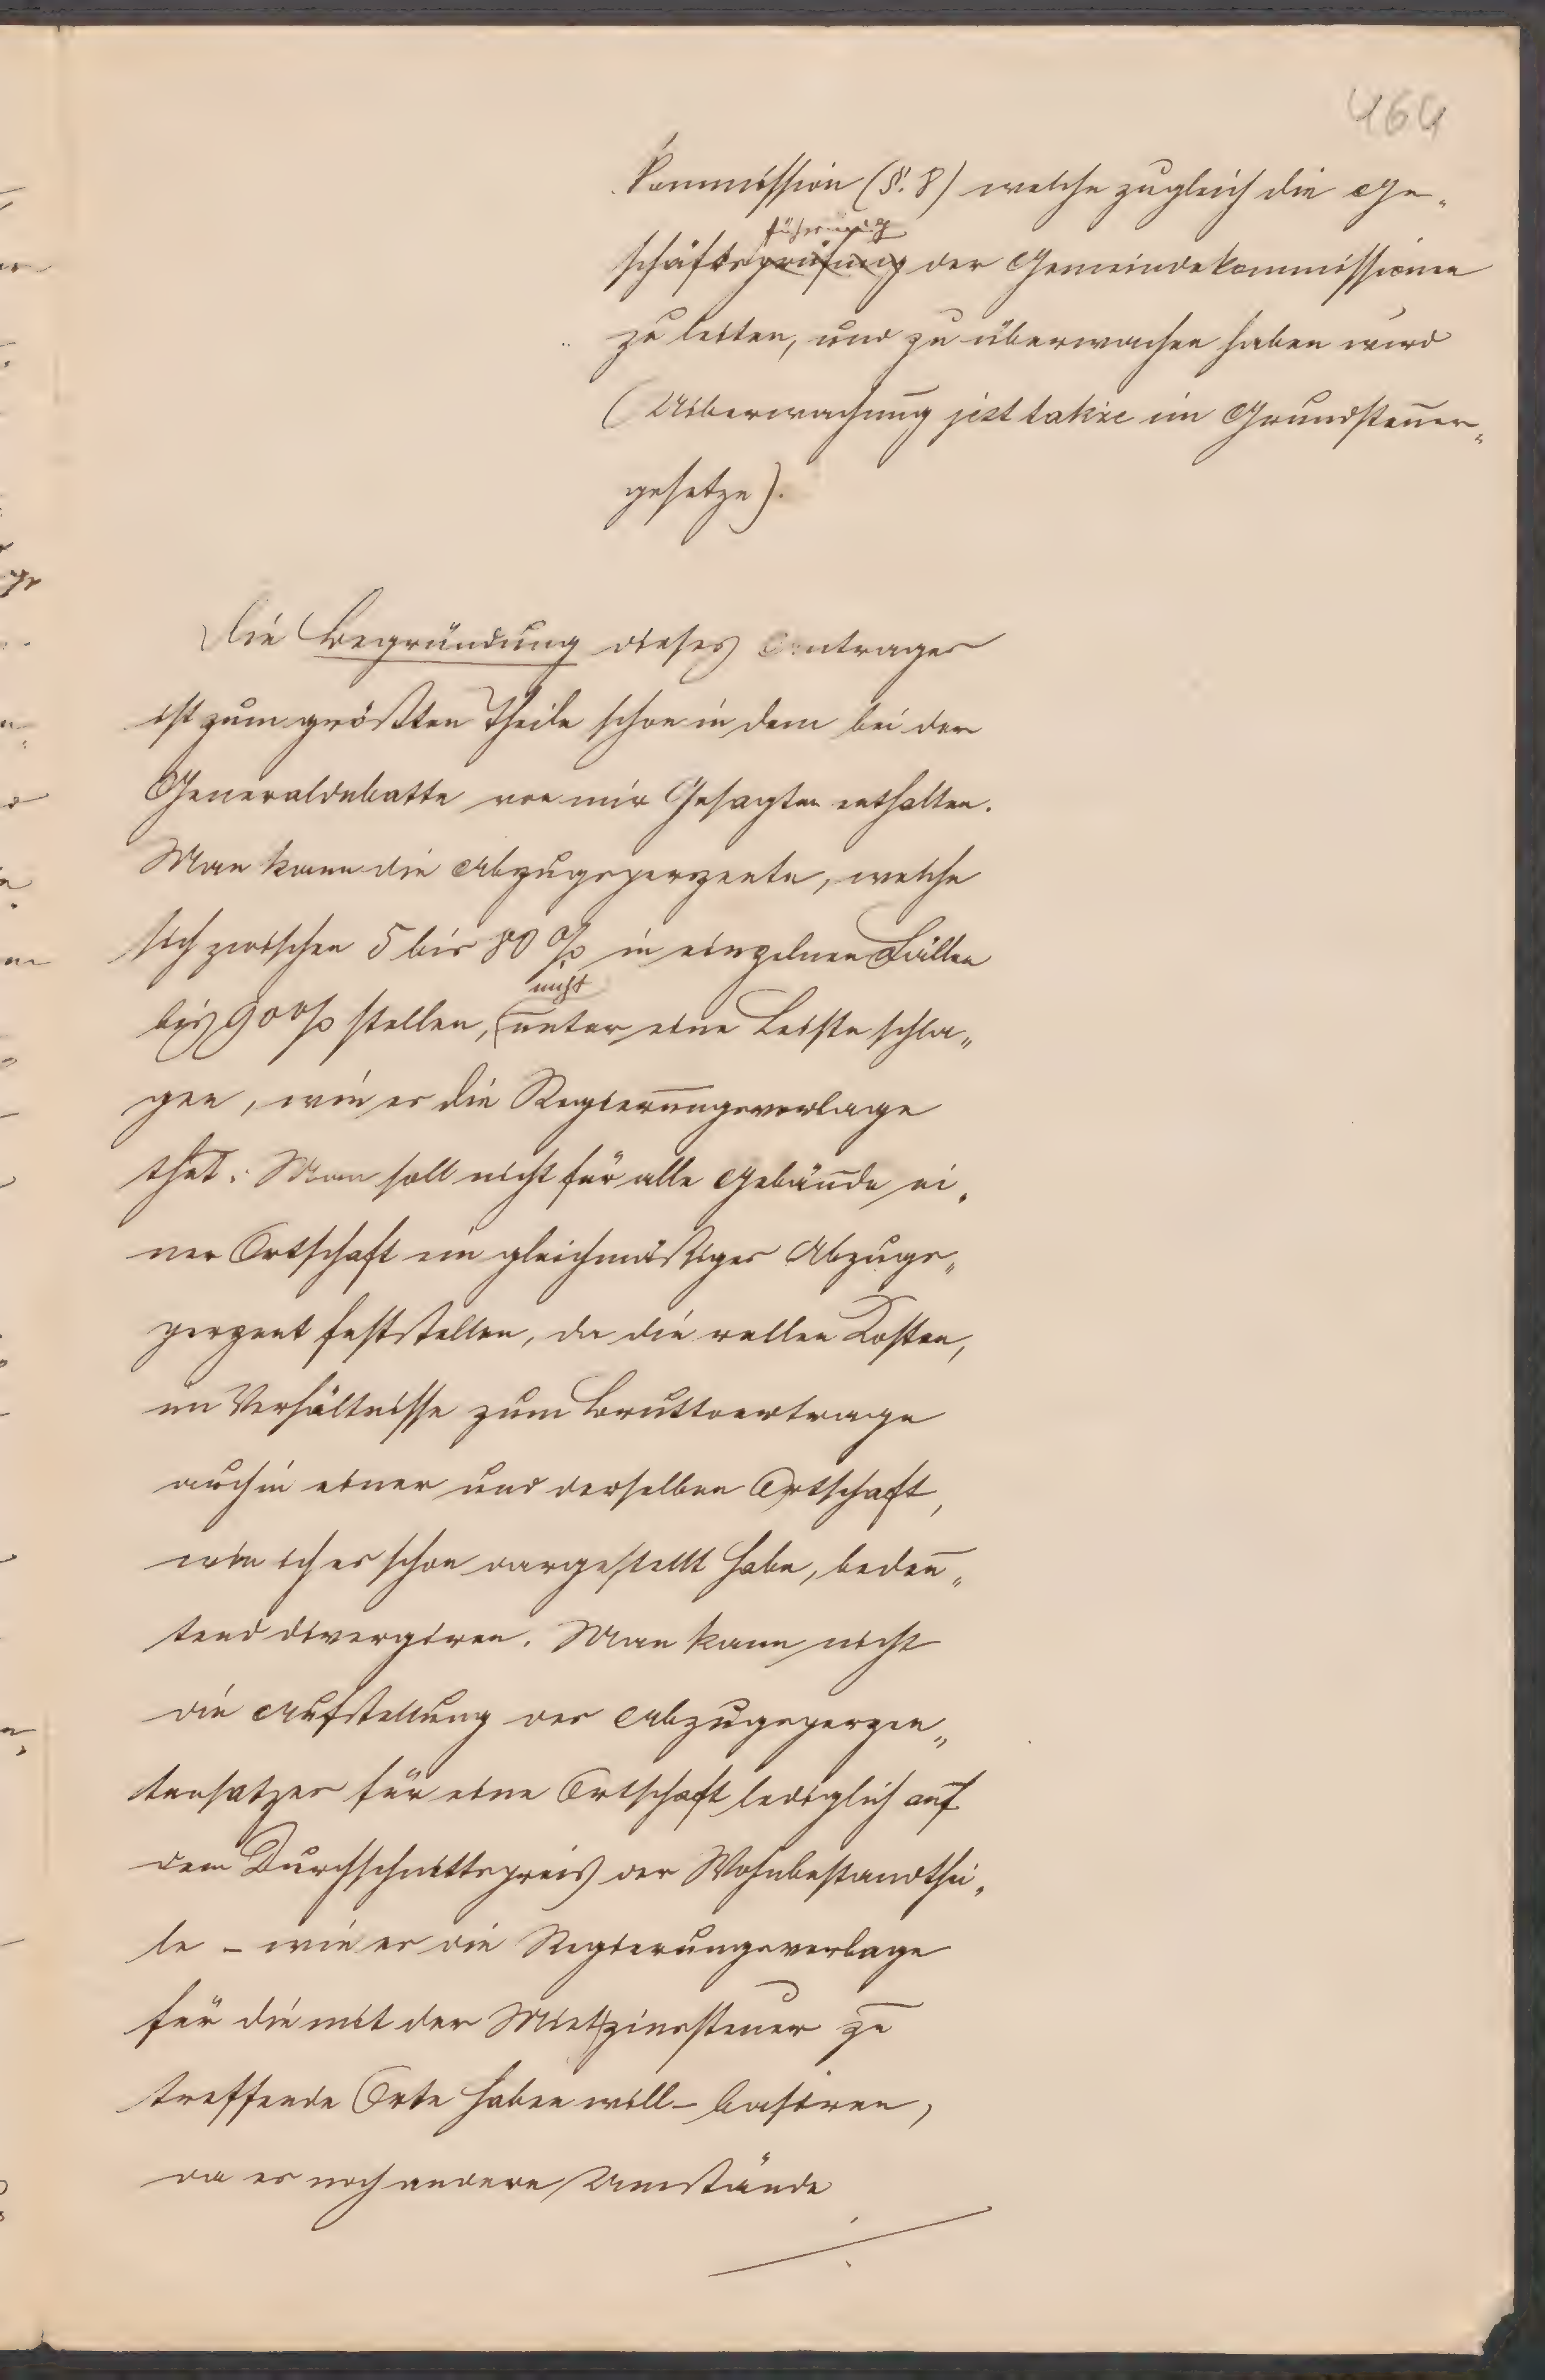 464
Kommission (§. 8) welche zugleich die Ge„
führung
schäftsprüfung der Gemeindekommissionen
zu leiten, und zu überwachen haben wird
(Uiberwachung jest także im Grundsteuer„
gesetze).
Die Begründung dieses Antrages
ist zum größten Theile schon in dem bei der
Generaldebatte von mir Gesagten enthalten.
Man kann die Abzugsperzente, welche
sich zwischen 5 bis 80 % in einzelnen Fällen
nicht
bis 90 % stellen, unter eine Leiste schla„
gen, wie es die Regierungsvorlage
that. Man soll nicht für alle Gebäude ei„
ner Ortschaft ein gleichmäßiges Abzugs„
perzent feststellen, da die reellen Kosten,
im Verhältnisse zum Bruttoertrage
auch in einer und derselben Ortschaft,
wie ich es schon dargestellt habe, bedeu„
tend divergiren. Man kann nicht
die Aufstellung des Abzugsperzen„
tensatzes für eine Ortschaft lediglich auf
dem Durchschnittspreis der Wohnbestandthei„
le – wie es die Regierungsvorlage
für die mit der Mietzinssteuer zu
treffende Orte haben will – basiren,
da es noch andere Umstände